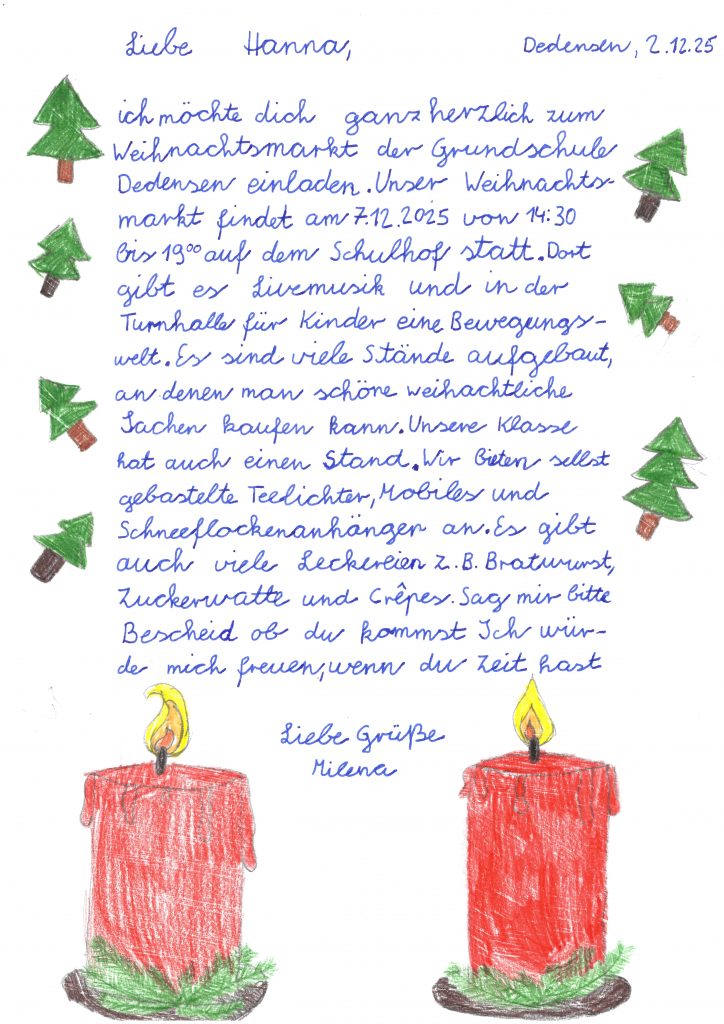 Liebe Hanna,
Dedensen, 2.12.25
ich möchte dich ganz herzlich zum
Weihnachtsmarkt der Grundschule
Dedensen einladen. Unser Weihnachts-
markt findet am 7.12.2025 von 14:30
bis 19⁰⁰ auf dem Schulhof statt. Dort
gibt es Livemusik und in der
Turnhalle für Kinder eine Bewegungs-
welt. Es sind viele Stände aufgebaut,
an denen man schöne weihachtliche
Sachen kaufen kann. Unsere Klasse
hat auch einen Stand. Wir bieten selbst
gebastelte Teelichter, Mobiles und
Schneeflockenanhänger an. Es gibt
auch viele Leckereien z. B. Bratwurst,
Zuckerwatte und Crêpes. Sag mir bitte
Bescheid ob du kommst Ich wür-
de mich freuen, wenn du Zeit hast
Liebe Grüße
Milena